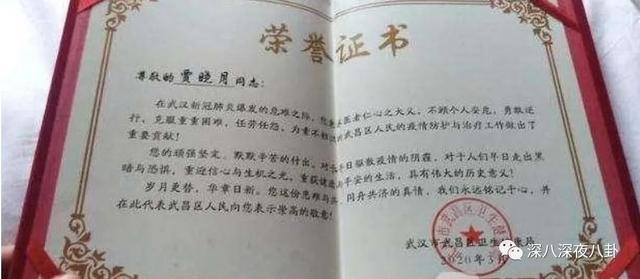 荣誉证书
尊敬的贾晓月同志:
在武汉新冠肺炎爆发的危难之际,您秉 医者仁心之大义,不顾个人安危,勇敢逆
行、克服重重困难,任劳任怨,为素不相 的武昌区人民的疫情防护与治疗工作做出了
重要贡献!
您的顽强坚定、默默辛苦的付出,对 早日驱散疫情的阴霾,对于人们早日走出黑
暗与恐惧,重迎信心与生机之光,重获健 与平安的生活,具有伟大的历史意义!
岁月更替,华章日新。您这份患难与 、同舟共济的真情,我们永远铭记于心,并
在此代表武昌区人民向您表示崇高的敬意!
武汉市武昌区卫生健 局
2020年3月
深八深夜八卦